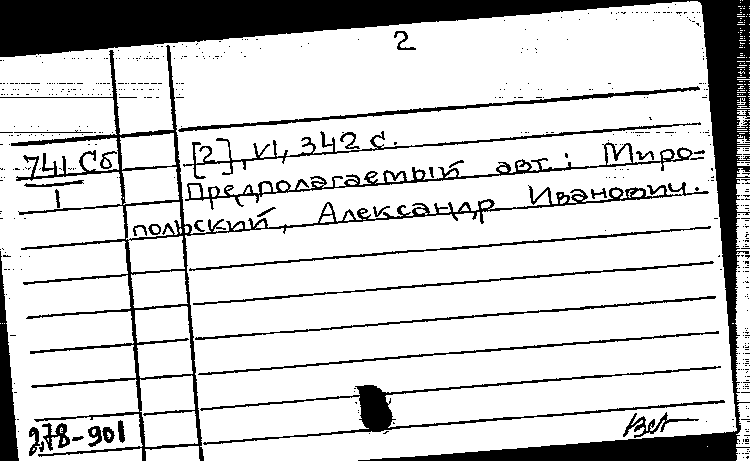 2
741 Сб
1
[2], VI, 342 с.
Предполагаемый авт.: Миро-
польский, Александр Иванович.
278-901